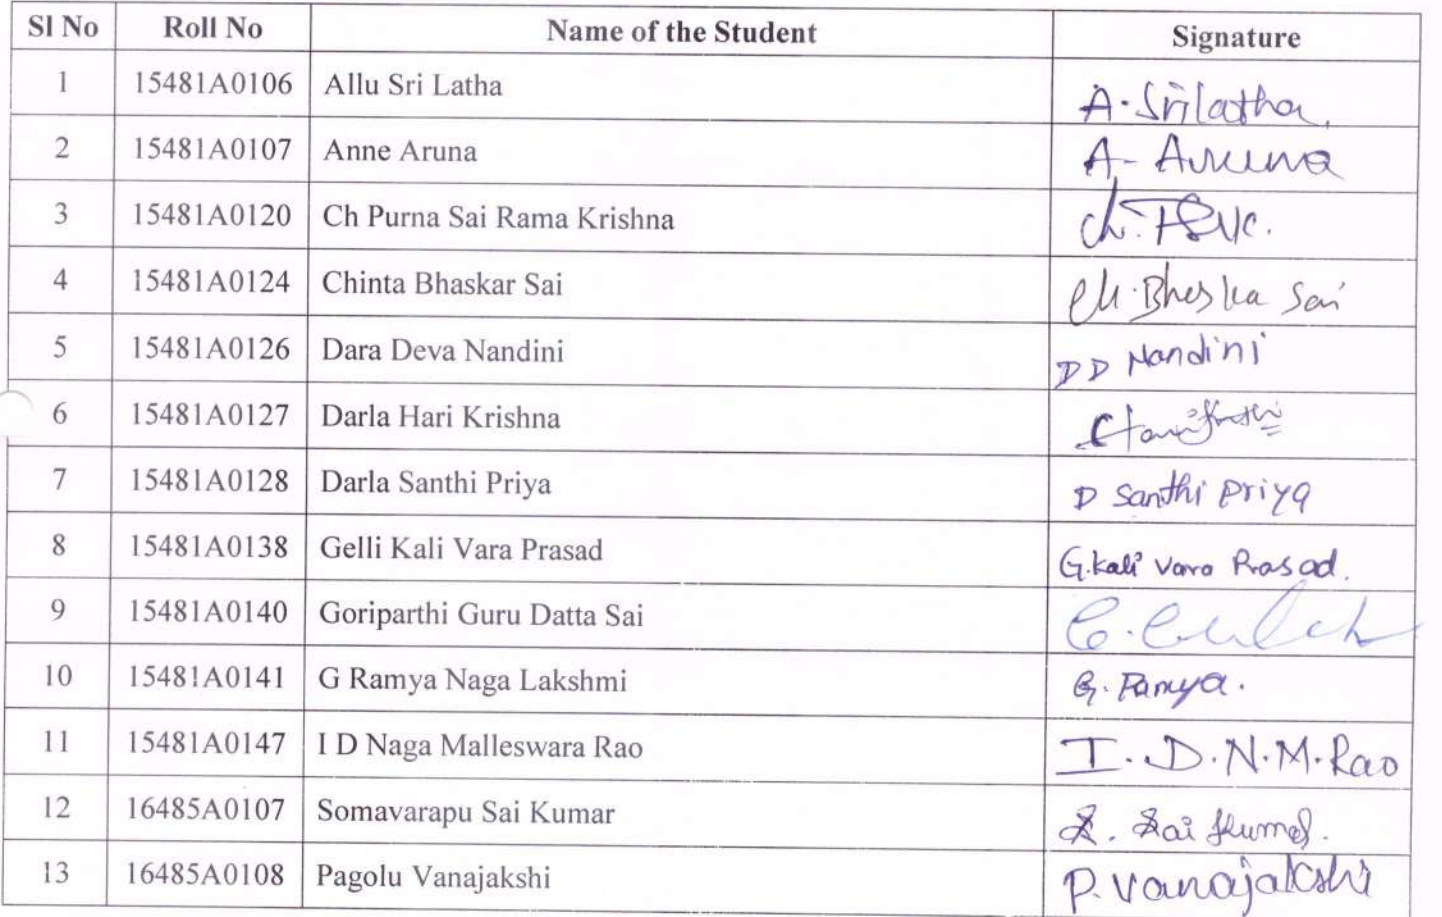 Sl No Roll No Name of the Student Signature
1 15481A0106 Allu Sri Latha A. Srilatha
2 15481A0107 Anne Aruna A- Aruna
3 15481A0120 Ch Purna Sai Rama Krishna Ch.
4 15481A0124 Chinta Bhaskar Sai Ch. Bhaska Sai
5 15481A0126 Dara Deva Nandini DD Nandini
6 15481A0127 Darla Hari Krishna
7 15481A0128 Darla Santhi Priya D Santhi Priya
8 15481A0138 Gelli Kali Vara Prasad G.Kali Vara Prasad.
9 15481A0140 Goriparthi Guru Datta Sai
10 15481A0141 G Ramya Naga Lakshmi G. Ramya.
11 15481A0147 I D Naga Malleswara Rao I. D. N. M. Rao
12 16485A0107 Somavarapu Sai Kumar S. Sai Kumar.
13 16485A0108 Pagolu Vanajakshi P. Vanajakshi